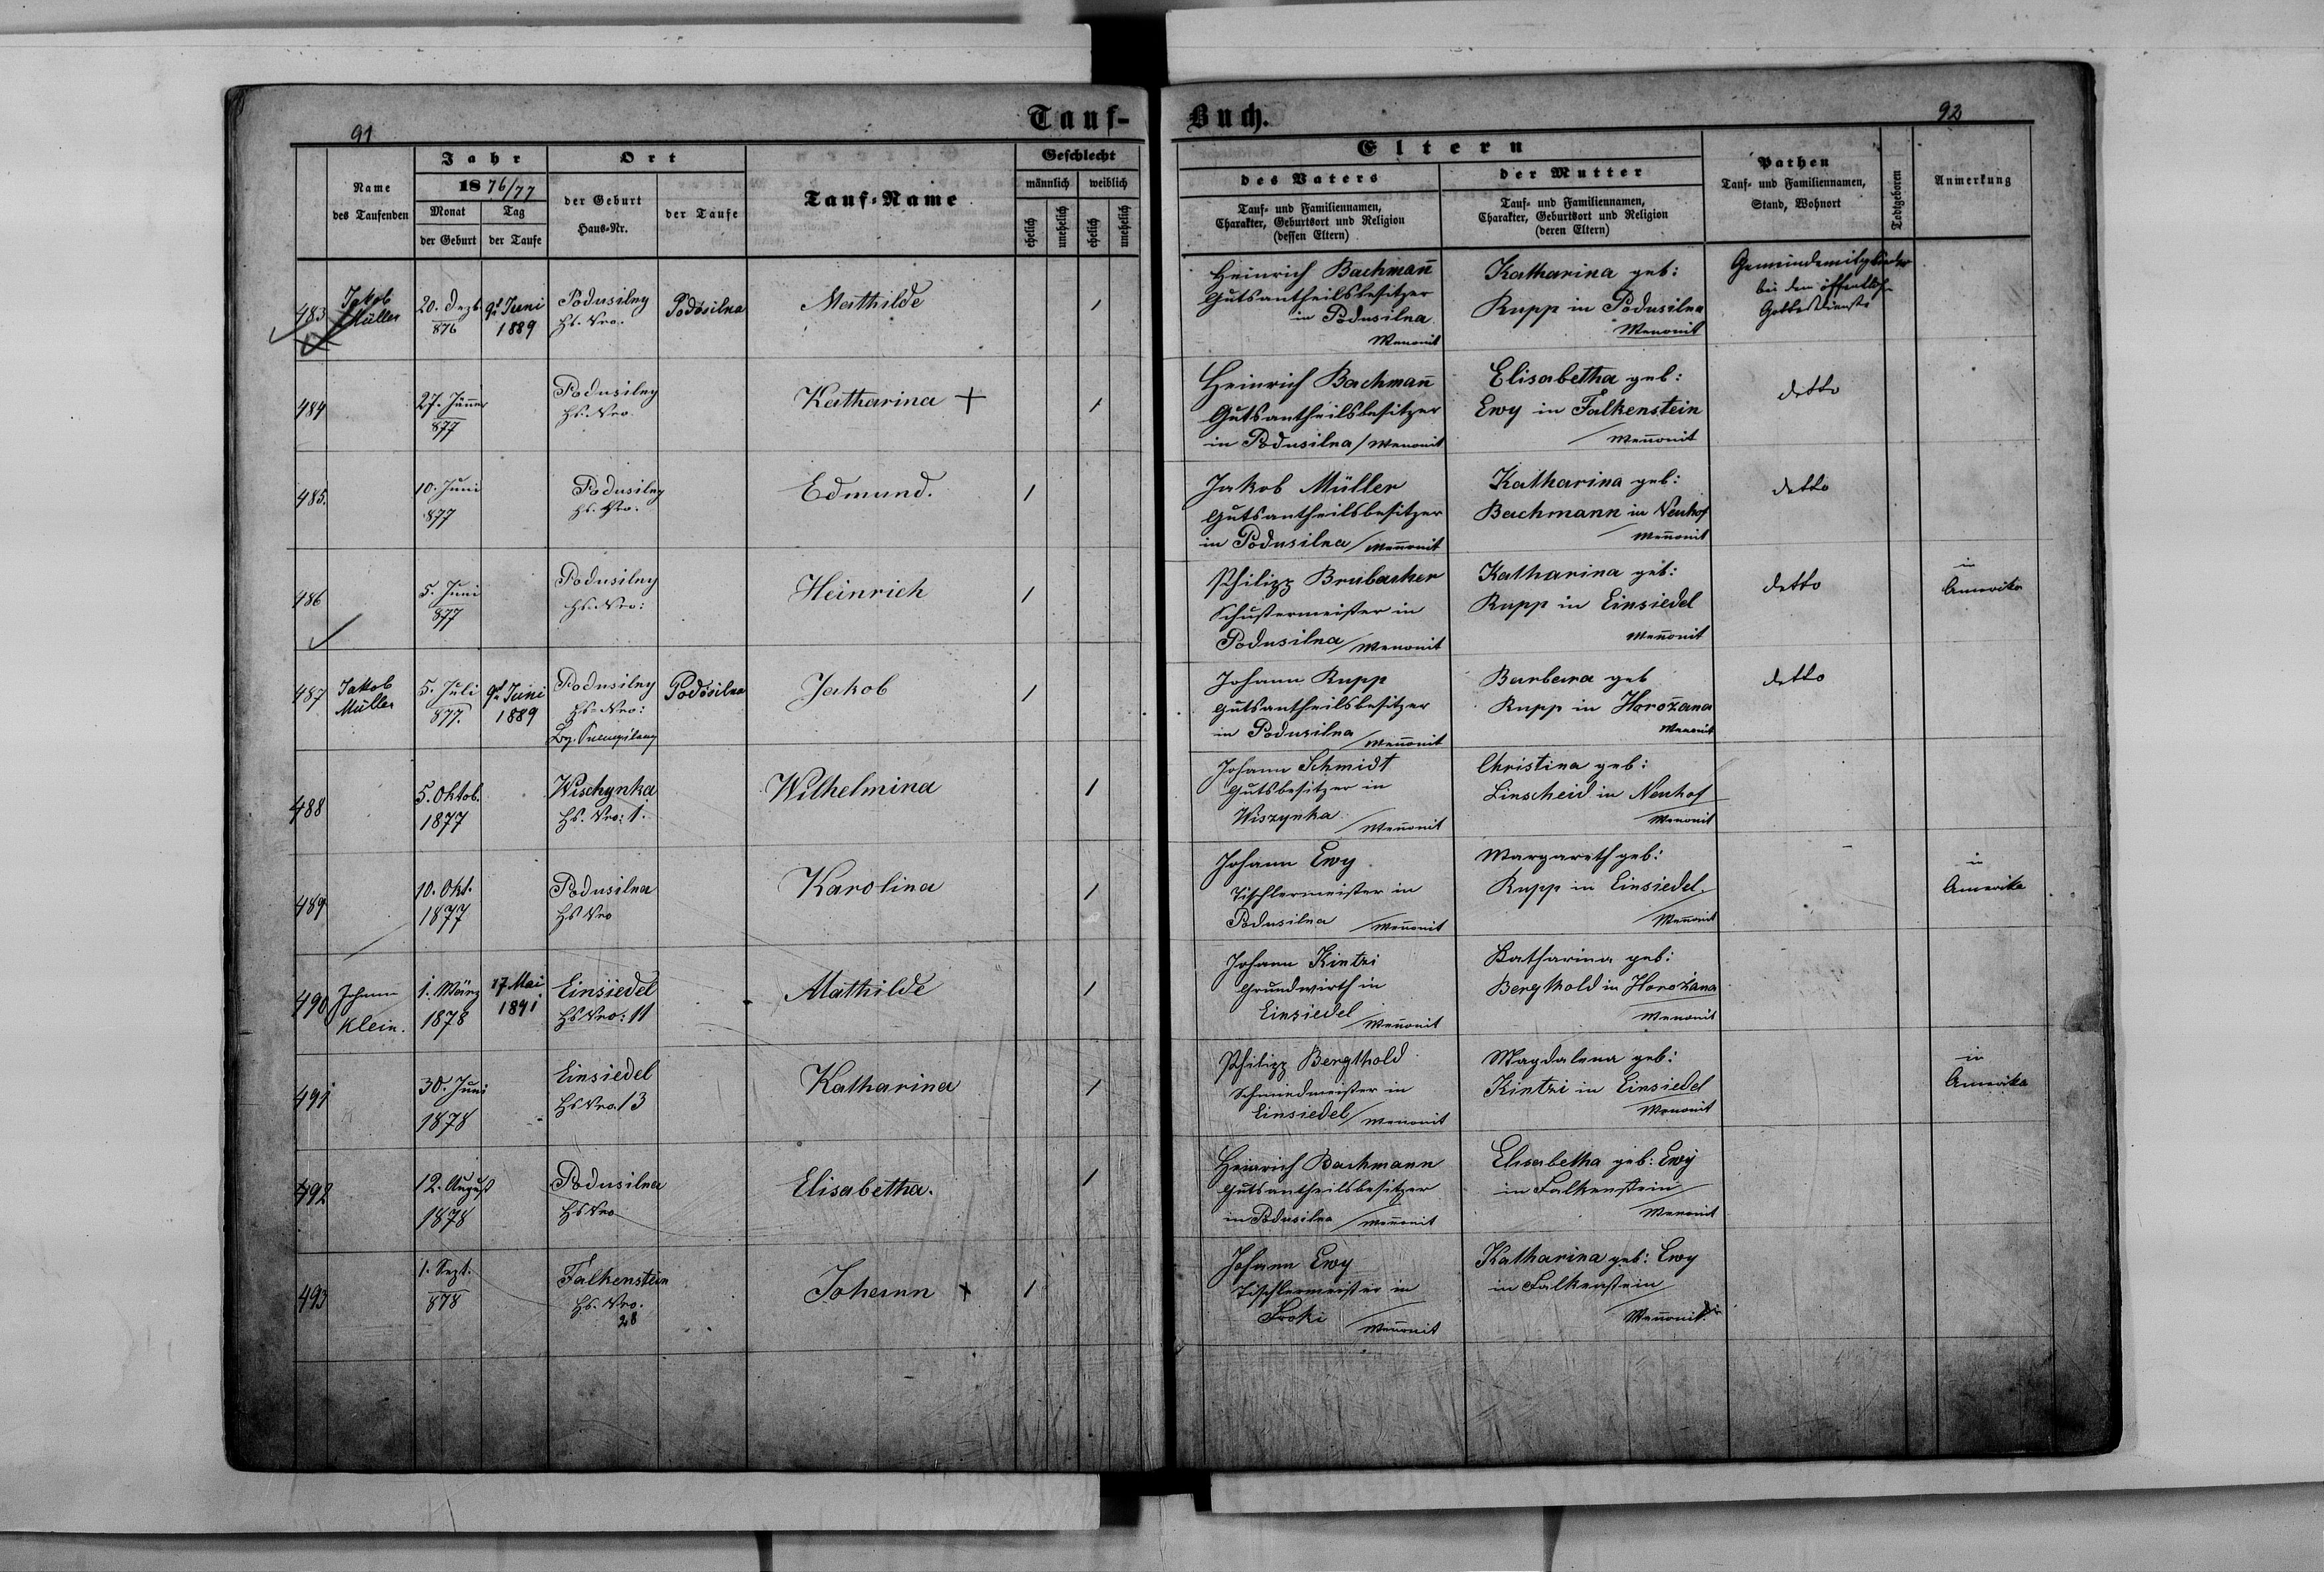 91
Tauf-
Buch.
92
Name
des Taufenden
Jahr
1876/77
Monat
Tag
der Geburt
der Taufe
Ort
der Geburt
Haus-Nr.
der Taufe
Tauf-Name
Geschlecht
männlich
weiblich
ehelich
unehelich
ehelich
unehelich
Eltern
des Vaters
Tauf- und Familiennamen,
Charakter, Geburtsort und Religion
(dessen Eltern)
der Mutter
Tauf- und Familiennamen,
Charakter, Geburtsort und Religion
(deren Eltern)
Pathen
Tauf- und Familiennamen,
Stand, Wohnort
Todtgeboren
Anmerkung
483
Jakob
Müller
20. Dezb
876
9t Juni
1889
Podusilny
Hs. Nro.
Podosilna
Mathilde
/
Heinrich Bachman̄
Gutsantheilsbesitzer
in Podusilna
Menonit
Katharina geb:
Rupp in Podusilna
Menonit
Gemeindemitglieder
bei dem öffentlich
Gottesdienste
484
27. Jänner
877
Podusilny
Hs. Nro.
Katharina +
/
Heinrich Bachman̄
Gutsantheilsbesitzer
in Podusilna / Menonit
Elisabetha geb:
Ewy in Falkenstein
/ Men̄onit
detto
485.
10. Juni
877
Podusilny
Hs. Nro.
Edmund.
/
Jakob Müller
Gutsantheilsbesitzer
in Podusilna / Men̄onit
Katharina geb:
Bachmann in Neuhof
/ Men̄onit
detto
486
5. Juni
877
Podusilny
Hs. Nro:
Heinrich
/
Philipp Brubacher
Schustermeister in
Podusilna / Menonit
Katharina geb:
Rupp in Einsiedel
Men̄onit
detto
in
Amerika
487
Jakob
Müller
5. Juli
877.
9t Juni
1889
Podusilny
Hs. Nro:
Podosilna
Jakob
/
Johann Rupp
Gutsantheilsbesitzer
in Podusilna
/ Men̄onit
Barbara geb
Rupp in Horožana
Menonit
detto
488
5. Oktob.
1877
Wischynka
Hs. Nro: 1.
Wilhelmina
/
Johann Schmidt
Gutsbesitzer in
Wiszynka
/ Men̄onit
Christina geb:
Linscheid in Neuhof
Menonit
489
10. Okt.
1877
Podusilna
Hs Nro
Karolina
/
Johann Ewy
Tischlermeister in
Podusilna / Men̄onit
Margareth geb:
Rupp in Einsiedel.
/ Men̄onit
in
Amerika
490
Johann
Klein.
1. März
1878
17 Mai
1891
Einsiedel
Hs Nro: 11
Mathilde
/
Johann Kintzi
Grundwirth in
Einsiedel
/ Men̄onit
Katharina geb:
Bergthold in Horožana
Menonit
491
30. Juni
1878
Einsiedel
Hs Nro. 13
Katharina
/
Philipp Bergthold
Schmiedmeister in
Einsiedel / Menonit
Magdalena geb:
Kintzi in Einsiedel
Menonit
in
Amerika
492
12. August
1878
Podusilna
Hs Nro
Elisabetha.
/
Heinrich Bachmann
Gutsantheilsbesitzer
in Podusilna / Men̄onit
Elisabetha geb: Ewy
in Falkenstein
/ Menonit
493
1. Sept.
878
Falkenstein
Hs. Nro.
28
Johann +
/
Johann Ewy
Tischlermeister in
/ Men̄onit
Katharina geb: Ewy
in Falkenstein
/ Men̄onit.